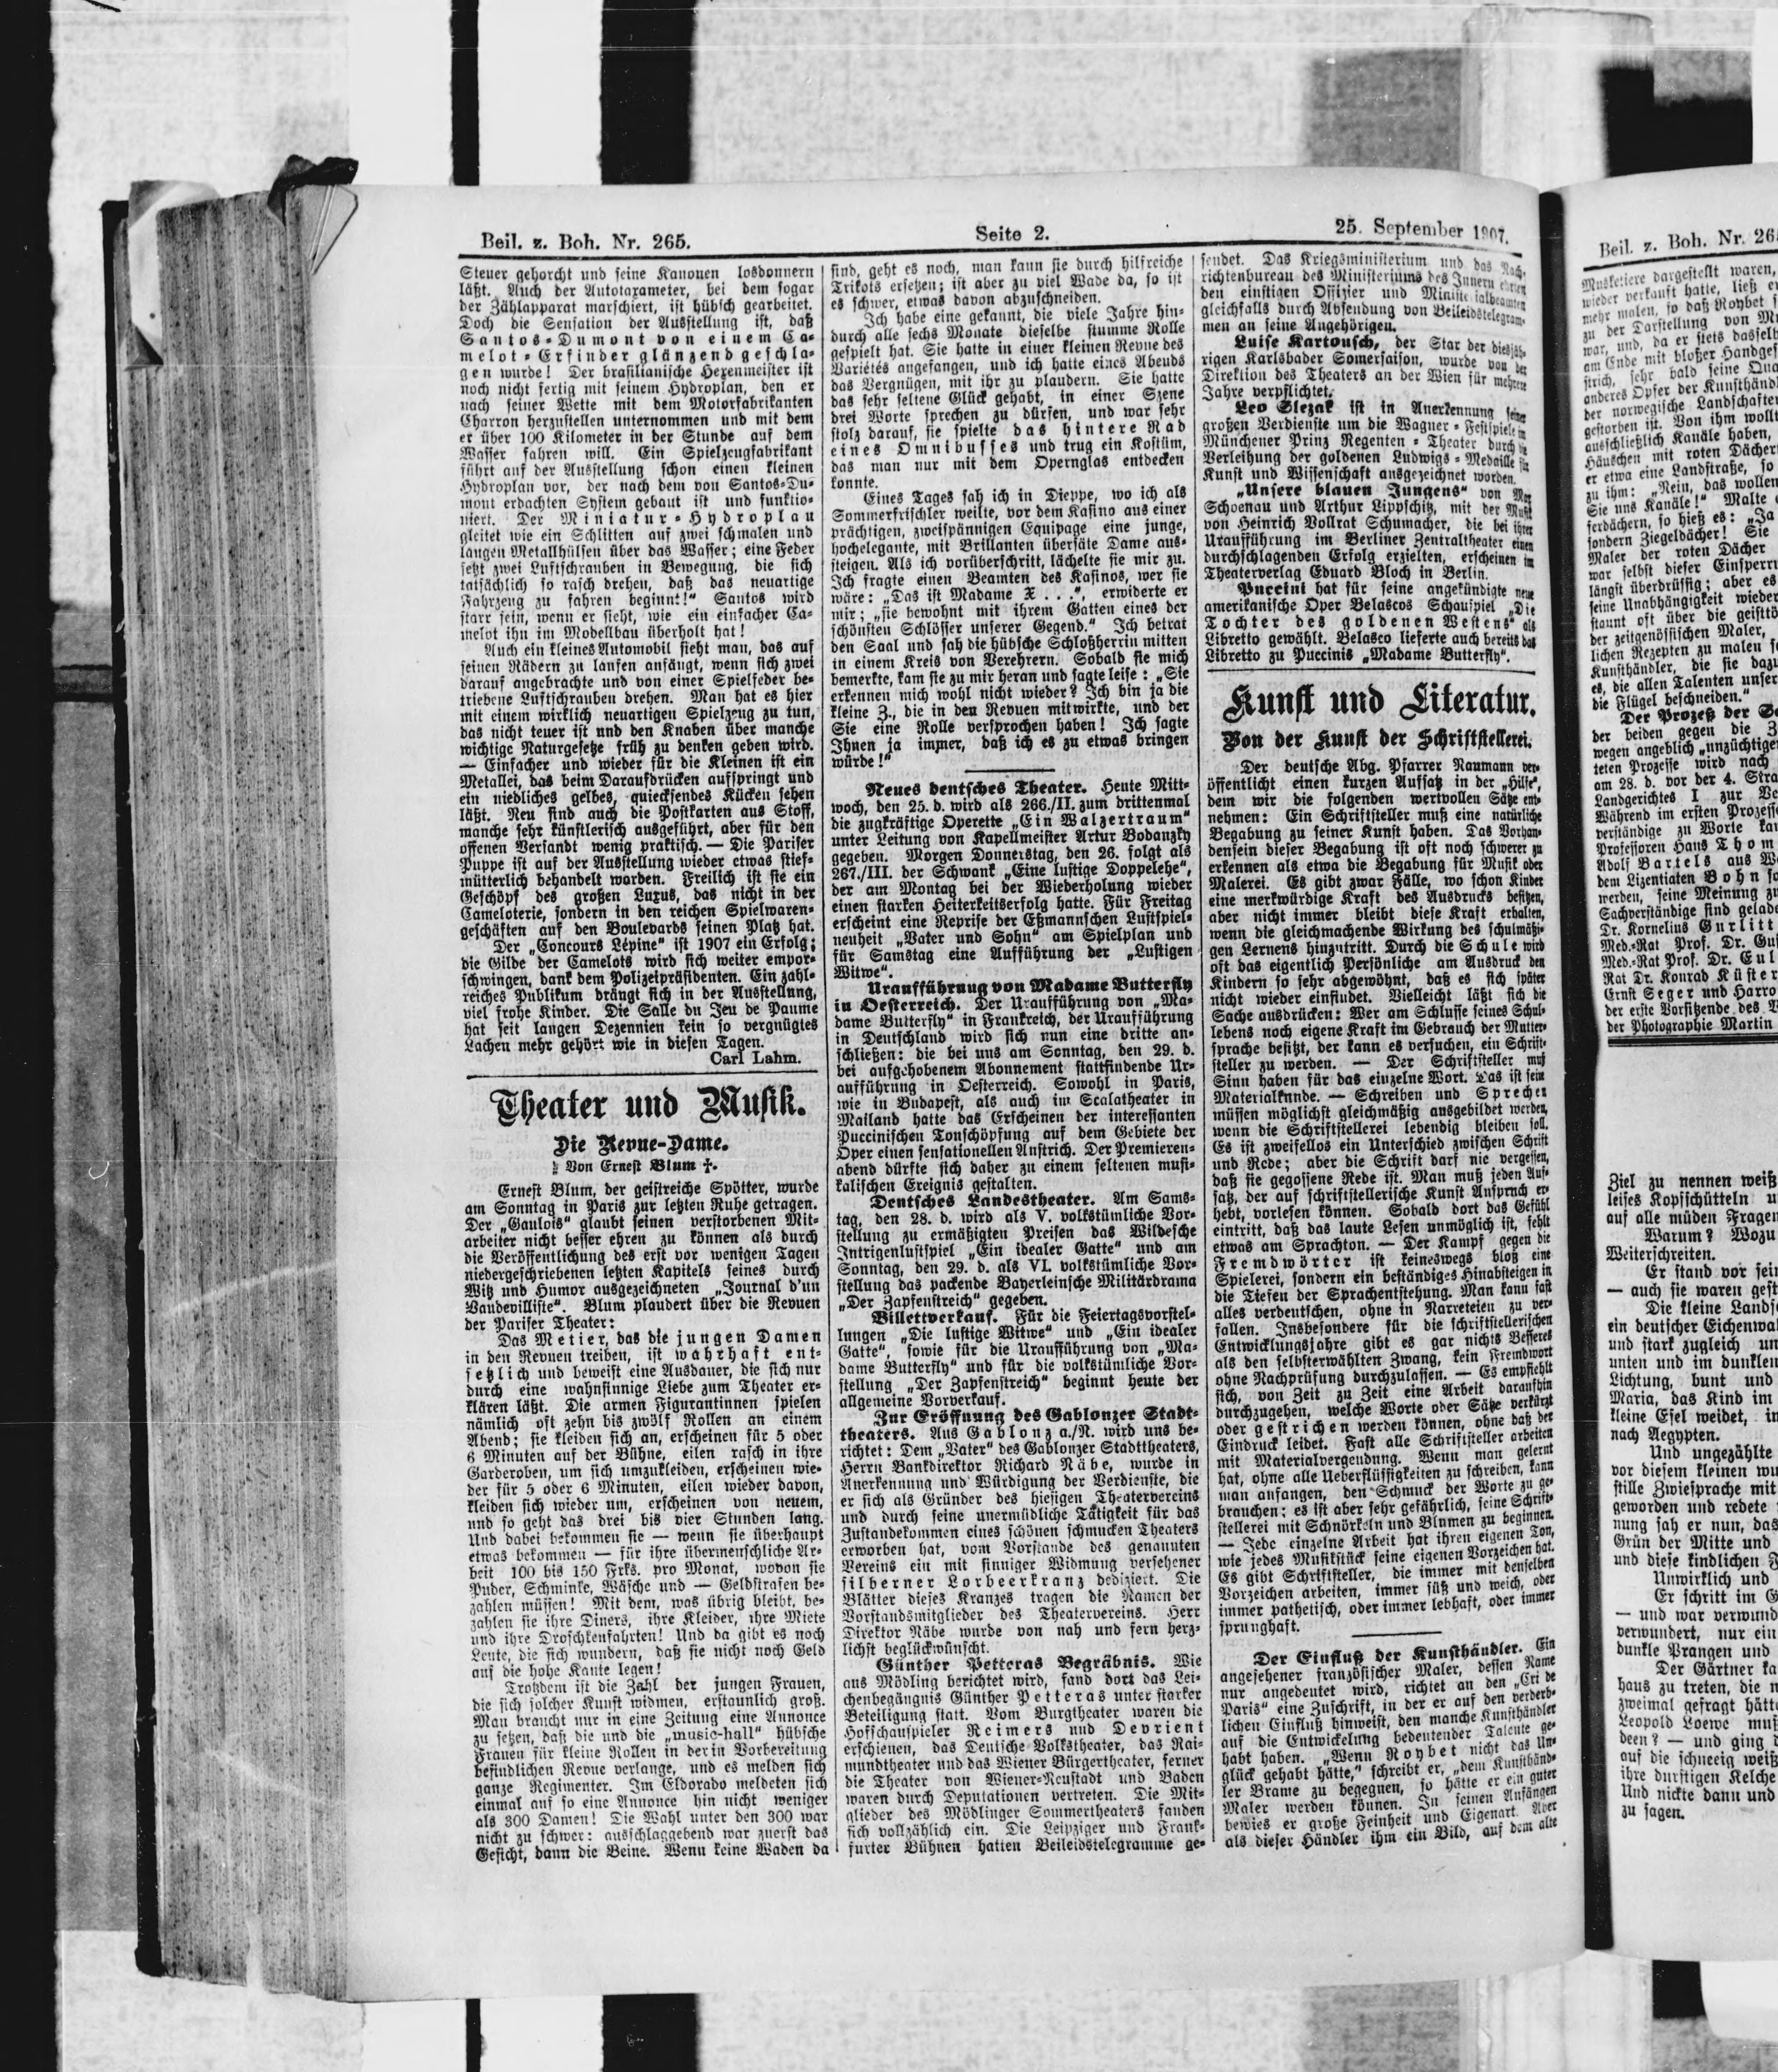 Beil. z. Boh. Nr. 265.
Seite 2.
25. September 1907.
Steuer gehorcht und seine Kanonen losdonnern
läßt. Auch der Autotaxameter, bei dem sogar
der Zählapparat marschiert, ist hübsch gearbeitet.
Doch die Sensation der Ausstellung ist, daß
Santos-Dumont von einem Ca-
melot-Erfinder glänzend geschla-
gen wurde! Der brasilianische Hexenmeister ist
noch nicht fertig mit seinem Hydroplan, den er
nach seiner Wette mit dem Motorfabrikanten
Charron herzustellen unternommen und mit dem
er über 100 Kilometer in der Stunde auf dem
Wasser fahren will. Ein Spielzeugfabrikant
führt auf der Ausstellung schon einen kleinen
Hydroplan vor, der nach dem von Santos-Du-
mont erdachten System gebaut ist und funktio-
niert. Der Miniatur-Hydroplan
gleitet wie ein Schlitten auf zwei schmalen und
langen Metallhülsen über das Wasser; eine Feder
setzt zwei Luftschrauben in Bewegung, die sich
tatsächlich so rasch drehen, daß das neuartige
Fahrzeug zu fahren beginnt!“ Santos wird
starr sein, wenn er sieht, wie ein einfacher Ca-
melot ihn im Modellbau überholt hat!
Auch ein kleines Automobil sieht man, das auf
seinen Rädern zu laufen anfängt, wenn sich zwei
darauf angebrachte und von einer Spielfeder be-
triebene Luftschrauben drehen. Man hat es hier
mit einem wirklich neuartigen Spielzeug zu tun,
das nicht teuer ist und den Knaben über manche
wichtige Naturgesetze früh zu denken geben wird.
— Einfacher und wieder für die Kleinen ist ein
Metallei, das beim Daraufdrücken aufspringt und
ein niedliches gelbes, quiecksendes Kücken sehen
läßt. Neu sind auch die Postkarten aus Stoff,
manche sehr künstlerisch ausgeführt, aber für den
offenen Versandt wenig praktisch. — Die Pariser
Puppe ist auf der Ausstellung wieder etwas stief-
mütterlich behandelt worden. Freilich ist sie ein
Geschöpf des großen Luxus, das nicht in der
Cameloterie, sondern in den reichen Spielwaren-
geschäften auf den Boulevards seinen Platz hat.
Der „Concours Lépine“ ist 1907 ein Erfolg;
die Gilde der Camelots wird sich weiter empor-
schwingen, dank dem Polizeipräsidenten. Ein zahl-
reiches Publikum drängt sich in der Ausstellung,
viel frohe Kinder. Die Salle du Jeu de Paume
hat seit langen Dezennien kein so vergnügtes
Lachen mehr gehört wie in diesen Tagen.
Carl Lahm.
Theater und Musik.
Die Revue-Dame.
Von Ernest Blum †.
Ernest Blum, der geistreiche Spötter, wurde
am Sonntag in Paris zur letzten Ruhe getragen.
Der „Gaulois“ glaubt seinen verstorbenen Mit-
arbeiter nicht besser ehren zu können als durch
die Veröffentlichung des erst vor wenigen Tagen
niedergeschriebenen letzten Kapitels seines durch
Witz und Humor ausgezeichneten „Journal d'un
Vaudevilliste“. Blum plaudert über die Revuen
der Pariser Theater:
Das Metier, das die jungen Damen
in den Revuen treiben, ist wahrhaft ent-
setzlich und beweist eine Ausdauer, die sich nur
durch eine wahnsinnige Liebe zum Theater er-
klären läßt. Die armen Figurantinnen spielen
nämlich oft zehn bis zwölf Rollen an einem
Abend; sie kleiden sich an, erscheinen für 5 oder
6 Minuten auf der Bühne, eilen rasch in ihre
Garderoben, um sich umzukleiden, erscheinen wie-
der für 5 oder 6 Minuten, eilen wieder davon,
kleiden sich wieder um, erscheinen von neuem,
und so geht das drei bis vier Stunden lang.
Und dabei bekommen sie — wenn sie überhaupt
etwas bekommen — für ihre übermenschliche Ar-
beit 100 bis 150 Frks. pro Monat, wovon sie
Puder, Schminke, Wäsche und — Geldstrafen be-
zahlen müssen! Mit dem, was übrig bleibt, be-
zahlen sie ihre Diners, ihre Kleider, ihre Miete
und ihre Droschkenfahrten! Und da gibt es noch
Leute, die sich wundern, daß sie nicht noch Geld
auf die hohe Kante legen!
Trotzdem ist die Zahl der jungen Frauen,
die sich solcher Kunst widmen, erstaunlich groß.
Man braucht nur in eine Zeitung eine Annonce
zu setzen, daß die und die „music-hall“ hübsche
Frauen für kleine Rollen in der in Vorbereitung
befindlichen Revue verlange, und es melden sich
ganze Regimenter. Im Eldorado meldeten sich
einmal auf so eine Annonce hin nicht weniger
als 300 Damen! Die Wahl unter den 300 war
nicht zu schwer: ausschlaggebend war zuerst das
Gesicht, dann die Beine. Wenn keine Waden da
sind, geht es noch, man kann sie durch hilfreiche
Trikots ersetzen; ist aber zu viel Wade da, so ist
es schwer, etwas davon abzuschneiden.
Ich habe eine gekannt, die viele Jahre hin-
durch alle sechs Monate dieselbe stumme Rolle
gespielt hat. Sie hatte in einer kleinen Revue des
Variétés angefangen, und ich hatte eines Abends
das Vergnügen, mit ihr zu plaudern. Sie hatte
das sehr seltene Glück gehabt, in einer Szene
drei Worte sprechen zu dürfen, und war sehr
stolz darauf, sie spielte das hintere Rad
eines Omnibusses und trug ein Kostüm,
das man nur mit dem Opernglas entdecken
konnte.
Eines Tages sah ich in Dieppe, wo ich als
Sommerfrischler weilte, vor dem Kasino aus einer
prächtigen, zweispännigen Equipage eine junge,
hochelegante, mit Brillanten übersäte Dame aus-
steigen. Als ich vorüberschritt, lächelte sie mir zu.
Ich fragte einen Beamten des Kasinos, wer sie
wäre: „Das ist Madame X . . .“, erwiderte er
mir; „sie bewohnt mit ihrem Gatten eines der
schönsten Schlösser unserer Gegend.“ Ich betrat
den Saal und sah die hübsche Schloßherrin mitten
in einem Kreis von Verehrern. Sobald sie mich
bemerkte, kam sie zu mir heran und sagte leise: „Sie
erkennen mich wohl nicht wieder? Ich bin ja die
kleine Z., die in den Revuen mitwirkte, und der
Sie eine Rolle versprochen haben! Ich sagte
Ihnen ja immer, daß ich es zu etwas bringen
würde!“
Neues deutsches Theater. Heute Mitt-
woch, den 25. d. wird als 266./II. zum drittenmal
die zugkräftige Operette „Ein Walzertraum“
unter Leitung von Kapellmeister Artur Bodanzky
gegeben. Morgen Donnerstag, den 26. folgt als
267./III. der Schwank „Eine lustige Doppelehe“,
der am Montag bei der Wiederholung wieder
einen starken Heiterkeitserfolg hatte. Für Freitag
erscheint eine Reprise der Eßmannschen Lustspiel-
neuheit „Vater und Sohn“ am Spielplan und
für Samstag eine Aufführung der „Lustigen
Witwe“.
Uraufführung von Madame Butterfly
in Oesterreich. Der Uraufführung von „Ma-
dame Butterfly“ in Frankreich, der Uraufführung
in Deutschland wird sich nun eine dritte an-
schließen: die bei uns am Sonntag, den 29. d.
bei aufgehobenem Abonnement stattfindende Ur-
aufführung in Oesterreich. Sowohl in Paris,
wie in Budapest, als auch im Scalatheater in
Mailand hatte das Erscheinen der interessanten
Puccinischen Tonschöpfung auf dem Gebiete der
Oper einen sensationellen Anstrich. Der Premieren-
abend dürfte sich daher zu einem seltenen musi-
kalischen Ereignis gestalten.
Deutsches Landestheater. Am Sams-
tag, den 28. d. wird als V. volkstümliche Vor-
stellung zu ermäßigten Preisen das Wildesche
Intrigenlustspiel „Ein idealer Gatte“ und am
Sonntag, den 29. d. als VI. volkstümliche Vor-
stellung das packende Bayerleinsche Militärdrama
„Der Zapfenstreich“ gegeben.
Billettverkauf. Für die Feiertagsvorstel-
lungen „Die lustige Witwe“ und „Ein idealer
Gatte“, sowie für die Uraufführung von „Ma-
dame Butterfly“ und für die volkstümliche Vor-
stellung „Der Zapfenstreich“ beginnt heute der
allgemeine Vorverkauf.
Zur Eröffnung des Gablonzer Stadt-
theaters. Aus Gablonz a./N. wird uns be-
richtet: Dem „Vater“ des Gablonzer Stadttheaters,
Herrn Bankdirektor Richard Näbe, wurde in
Anerkennung und Würdigung der Verdienste, die
er sich als Gründer des hiesigen Theatervereins
und durch seine unermüdliche Tätigkeit für das
Zustandekommen eines schönen schmucken Theaters
erworben hat, vom Vorstande des genannten
Vereins ein mit sinniger Widmung versehener
silberner Lorbeerkranz dediziert. Die
Blätter dieses Kranzes tragen die Namen der
Vorstandsmitglieder des Theatervereins. Herr
Direktor Näbe wurde von nah und fern herz-
lichst beglückwünscht.
Günther Petteras Begräbnis. Wie
aus Mödling berichtet wird, fand dort das Lei-
chenbegängnis Günther Petteras unter starker
Beteiligung statt. Vom Burgtheater waren die
Hofschauspieler Reimers und Devrient
erschienen, das Deutsche Volkstheater, das Rai-
mundtheater und das Wiener Bürgertheater, ferner
die Theater von Wiener-Neustadt und Baden
waren durch Deputationen vertreten. Die Mit-
glieder des Mödlinger Sommertheaters fanden
sich vollzählich ein. Die Leipziger und Frank-
furter Bühnen hatten Beileidstelegramme ge-
sendet. Das Kriegsministerium und das Nach-
richtenbureau des Ministeriums des Innern ehrten
den einstigen Offizier und Ministerialbeamten
gleichfalls durch Absendung von Beileidstelegram-
men an seine Angehörigen.
Luise Kartousch, der Star der diesjäh-
rigen Karlsbader Somersaison, wurde von der
Direktion des Theaters an der Wien für mehrere
Jahre verpflichtet.
Leo Slezak ist in Anerkennung seiner
großen Verdienste um die Wagner-Festspiele im
Münchener Prinz Regenten-Theater durch die
Verleihung der goldenen Ludwigs-Medaille für
Kunst und Wissenschaft ausgezeichnet worden.
„Unsere blauen Jungens“ von Max
Schoenau und Arthur Lippschitz, mit der Musik
von Heinrich Vollrat Schumacher, die bei ihrer
Uraufführung im Berliner Zentraltheater einen
durchschlagenden Erfolg erzielten, erscheinen im
Theaterverlag Eduard Bloch in Berlin.
Puccini hat für seine angekündigte neue
amerikanische Oper Belascos Schauspiel „Die
Tochter des goldenen Westens“ als
Libretto gewählt. Belasco lieferte auch bereits das
Libretto zu Puccinis „Madame Butterfly“.
Kunst und Literatur.
Von der Kunst der Schriftstellerei.
Der deutsche Abg. Pfarrer Naumann ver-
öffentlicht einen kurzen Aufsatz in der „Hilfe“,
dem wir die folgenden wertvollen Sätze ent-
nehmen: Ein Schriftsteller muß eine natürliche
Begabung zu seiner Kunst haben. Das Vorhan-
densein dieser Begabung ist oft noch schwerer zu
erkennen als etwa die Begabung für Musik oder
Malerei. Es gibt zwar Fälle, wo schon Kinder
eine merkwürdige Kraft des Ausdrucks besitzen,
aber nicht immer bleibt diese Kraft erhalten,
wenn die gleichmachende Wirkung des schulmäßi-
gen Lernens hinzutritt. Durch die Schule wird
oft das eigentlich Persönliche am Ausdruck den
Kindern so sehr abgewöhnt, daß es sich später
nicht wieder einfindet. Vielleicht läßt sich die
Sache ausdrücken: Wer am Schlusse seines Schul-
lebens noch eigene Kraft im Gebrauch der Mutter-
sprache besitzt, der kann es versuchen, ein Schrift-
steller zu werden. — Der Schriftsteller muß
Sinn haben für das einzelne Wort. Das ist sein
Materialkunde. — Schreiben und Sprechen
müssen möglichst gleichmäßig ausgebildet werden,
wenn die Schriftstellerei lebendig bleiben soll.
Es ist zweifellos ein Unterschied zwischen Schrift
und Rede; aber die Schrift darf nie vergessen,
daß sie gegossene Rede ist. Man muß jeden Auf-
satz, der auf schriftstellerische Kunst Anspruch er-
hebt, vorlesen können. Sobald dort das Gefühl
eintritt, daß das laute Lesen unmöglich ist, fehlt
etwas am Sprachton. — Der Kampf gegen die
Fremdwörter ist keineswegs bloß eine
Spielerei, sondern ein beständiges Hinabsteigen in
die Tiefen der Sprachentstehung. Man kann fast
alles verdeutschen, ohne in Narreteien zu ver-
fallen. Insbesondere für die schriftstellerischen
Entwicklungsjahre gibt es gar nichts Besseres
als den selbsterwählten Zwang, kein Fremdwort
ohne Nachprüfung durchzulassen. — Es empfiehlt
sich, von Zeit zu Zeit eine Arbeit daraufhin
durchzugehen, welche Worte oder Sätze verkürzt
oder gestrichen werden können, ohne daß der
Eindruck leidet. Fast alle Schriftsteller arbeiten
mit Materialvergeudung. Wenn man gelernt
hat, ohne alle Ueberflüssigkeiten zu schreiben, kann
man anfangen, den Schmuck der Worte zu ge-
brauchen; es ist aber sehr gefährlich, seine Schrift-
stellerei mit Schnörkeln und Blumen zu beginnen.
— Jede einzelne Arbeit hat ihren eigenen Ton,
wie jedes Musikstück seine eigenen Vorzeichen hat.
Es gibt Schriftsteller, die immer mit denselben
Vorzeichen arbeiten, immer süß und weich, oder
immer pathetisch, oder immer lebhaft, oder immer
sprunghaft.
Der Einfluß der Kunsthändler. Ein
angesehener französischer Maler, dessen Name
nur angedeutet wird, richtet an den „Cri de
Paris“ eine Zuschrift, in der er auf den verderb-
lichen Einfluß hinweist, den manche Kunsthändler
auf die Entwickelung bedeutender Talente ge-
habt haben. „Wenn Roybet nicht das Un-
glück gehabt hätte,“ schreibt er, „dem Kunsthänd-
ler Brame zu begegnen, so hätte er ein guter
Maler werden können. In seinen Anfängen
bewies er große Feinheit und Eigenart. Aber
als dieser Händler ihm ein Bild, auf dem alte
Beil. z. Boh. Nr. 26
Musketiere dargestellt waren,
wieder verkauft hatte, ließ er
mehr malen, so daß Roybet
zu der Darstellung von
war, und, da er stets dasselb
am Ende mit bloßer Handges
strich, sehr bald seine
anderes Opfer der Kunsthändl
der norwegische Landschafte
gestorben ist. Von ihm wollt
ausschließlich Kanäle haben,
Häuschen mit roten Dächer
er etwa eine Landstraße, so
zu ihm: „Nein, das wollen
Sie uns Kanäle!“ Malte
ferdächern, so hieß es: „Ja
sondern Ziegeldächer! Sie
Maler der roten Dächer
war selbst dieser Einsperr
längst überdrüssig; aber es
seine Unabhängigkeit wieder
staunt oft über die
der zeitgenössischen Maler,
lichen Rezepten zu malen
Kunsthändler, die sie dazu
es, die allen Talenten unser
die Flügel beschneiden.“
Der Prozeß der
der beiden gegen die
wegen angeblich „unzüchtige
teten Prozesse wird nach
am 28. d. vor der 4. Stra
Landgerichtes I zur
Während im ersten Prozess
verständige zu Worte
Professoren Hans Thom
Adolf Bartels aus
dem Lizentiaten Bohn
werden, seine Meinung zu
Sachverständige sind gelade
Dr. Kornelius Gurlitt
Med.-Rat Prof. Dr.
Med.-Rat Prof. Dr. Eul
Rat Dr. Konrad Küster
Ernst Seger und Harro
der erste Vorsitzende des
der Photographie Martin
Ziel zu nennen weiß
leises Kopfschütteln
auf alle müden Fragen
Warum? Wozu
Weiterschreiten.
Er stand vor sein
— auch sie waren gest
Die kleine Lands
ein deutscher Eichenwal
und stark zugleich
unten und im dunklen
Lichtung, bunt und
Maria, das Kind im
kleine Esel weidet,
nach Aegypten.
Und ungezählte
vor diesem kleinen
stille Zwiesprache mit
geworden und redete
nung sah er nun, das
Grün der Mitte und
und diese kindlichen
Unwirklich und
Er schritt im G
— und war verwund
verwundert, nur ein
dunkle Prangen und
Der Gärtner ka
haus zu treten, die
zweimal gefragt hätt
Leopold Loewe muß
deen? — und ging
auf die schneeig weiß
ihre durstigen Kelche
Und nickte dann und
zu sagen.